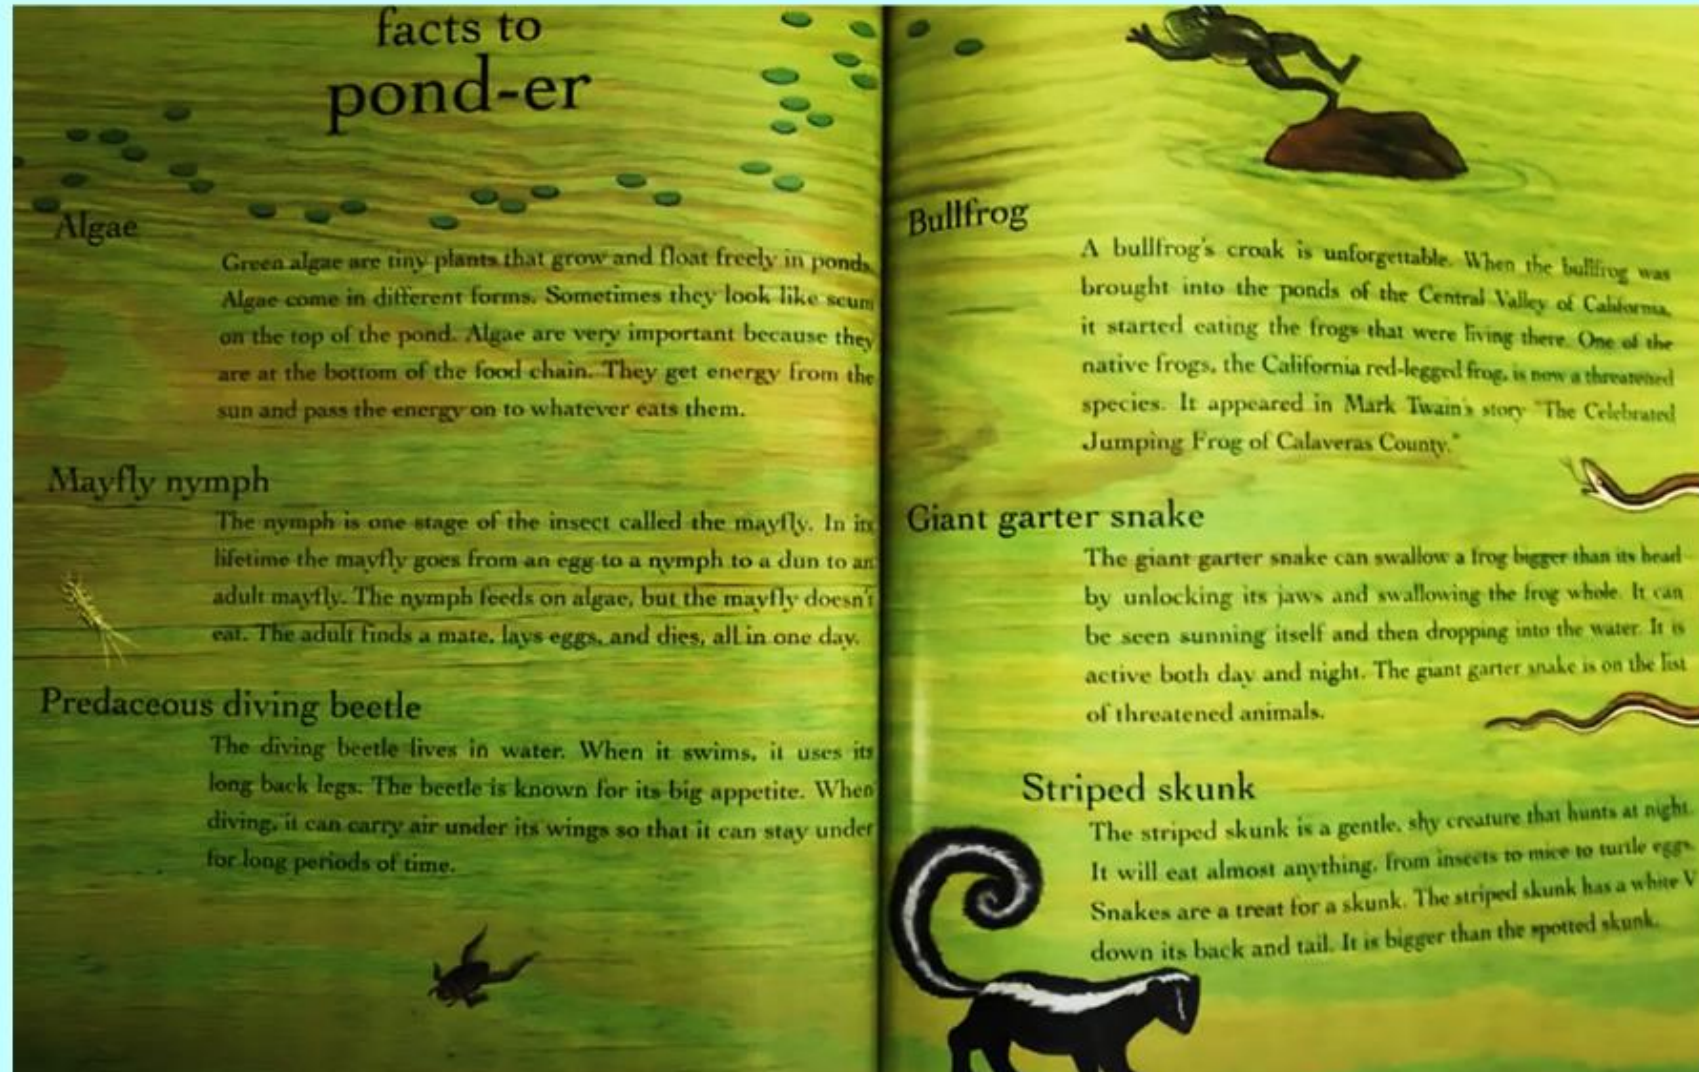 facts to
pond-er
Algae
Green algae are tiny plants that grow and float freely in ponds.
Algae come in different forms. Sometimes they look like scum
on the top of the pond. Algae are very important because they
are at the bottom of the food chain. They get energy from the
sun and pass the energy on to whatever eats them.
Mayfly nymph
The nymph is one stage of the insect called the mayfly. In its
lifetime the mayfly goes from an egg to a nymph to a dun to an
adult mayfly. The nymph feeds on algae, but the mayfly doesn't
eat. The adult finds a mate, lays eggs, and dies, all in one day.
Predaceous diving beetle
The diving beetle lives in water. When it swims, it uses its
long back legs. The beetle is known for its big appetite. When
diving, it can carry air under its wings so that it can stay under
for long periods of time.
Bullfrog
A bullfrog's croak is unforgettable. When the bullfrog was
brought into the ponds of the Central Valley of California,
it started eating the frogs that were living there. One of the
native frogs, the California red-legged frog, is now a threatened
species. It appeared in Mark Twain's story "The Celebrated
Jumping Frog of Calaveras County."
Giant garter snake
The giant garter snake can swallow a frog bigger than its head
by unlocking its jaws and swallowing the frog whole. It can
be seen sunning itself and then dropping into the water. It is
active both day and night. The giant garter snake is on the list
of threatened animals.
Striped skunk
The striped skunk is a gentle, shy creature that hunts at night.
It will eat almost anything, from insects to mice to turtle eggs.
Snakes are a treat for a skunk. The striped skunk has a white V
down its back and tail. It is bigger than the spotted skunk.